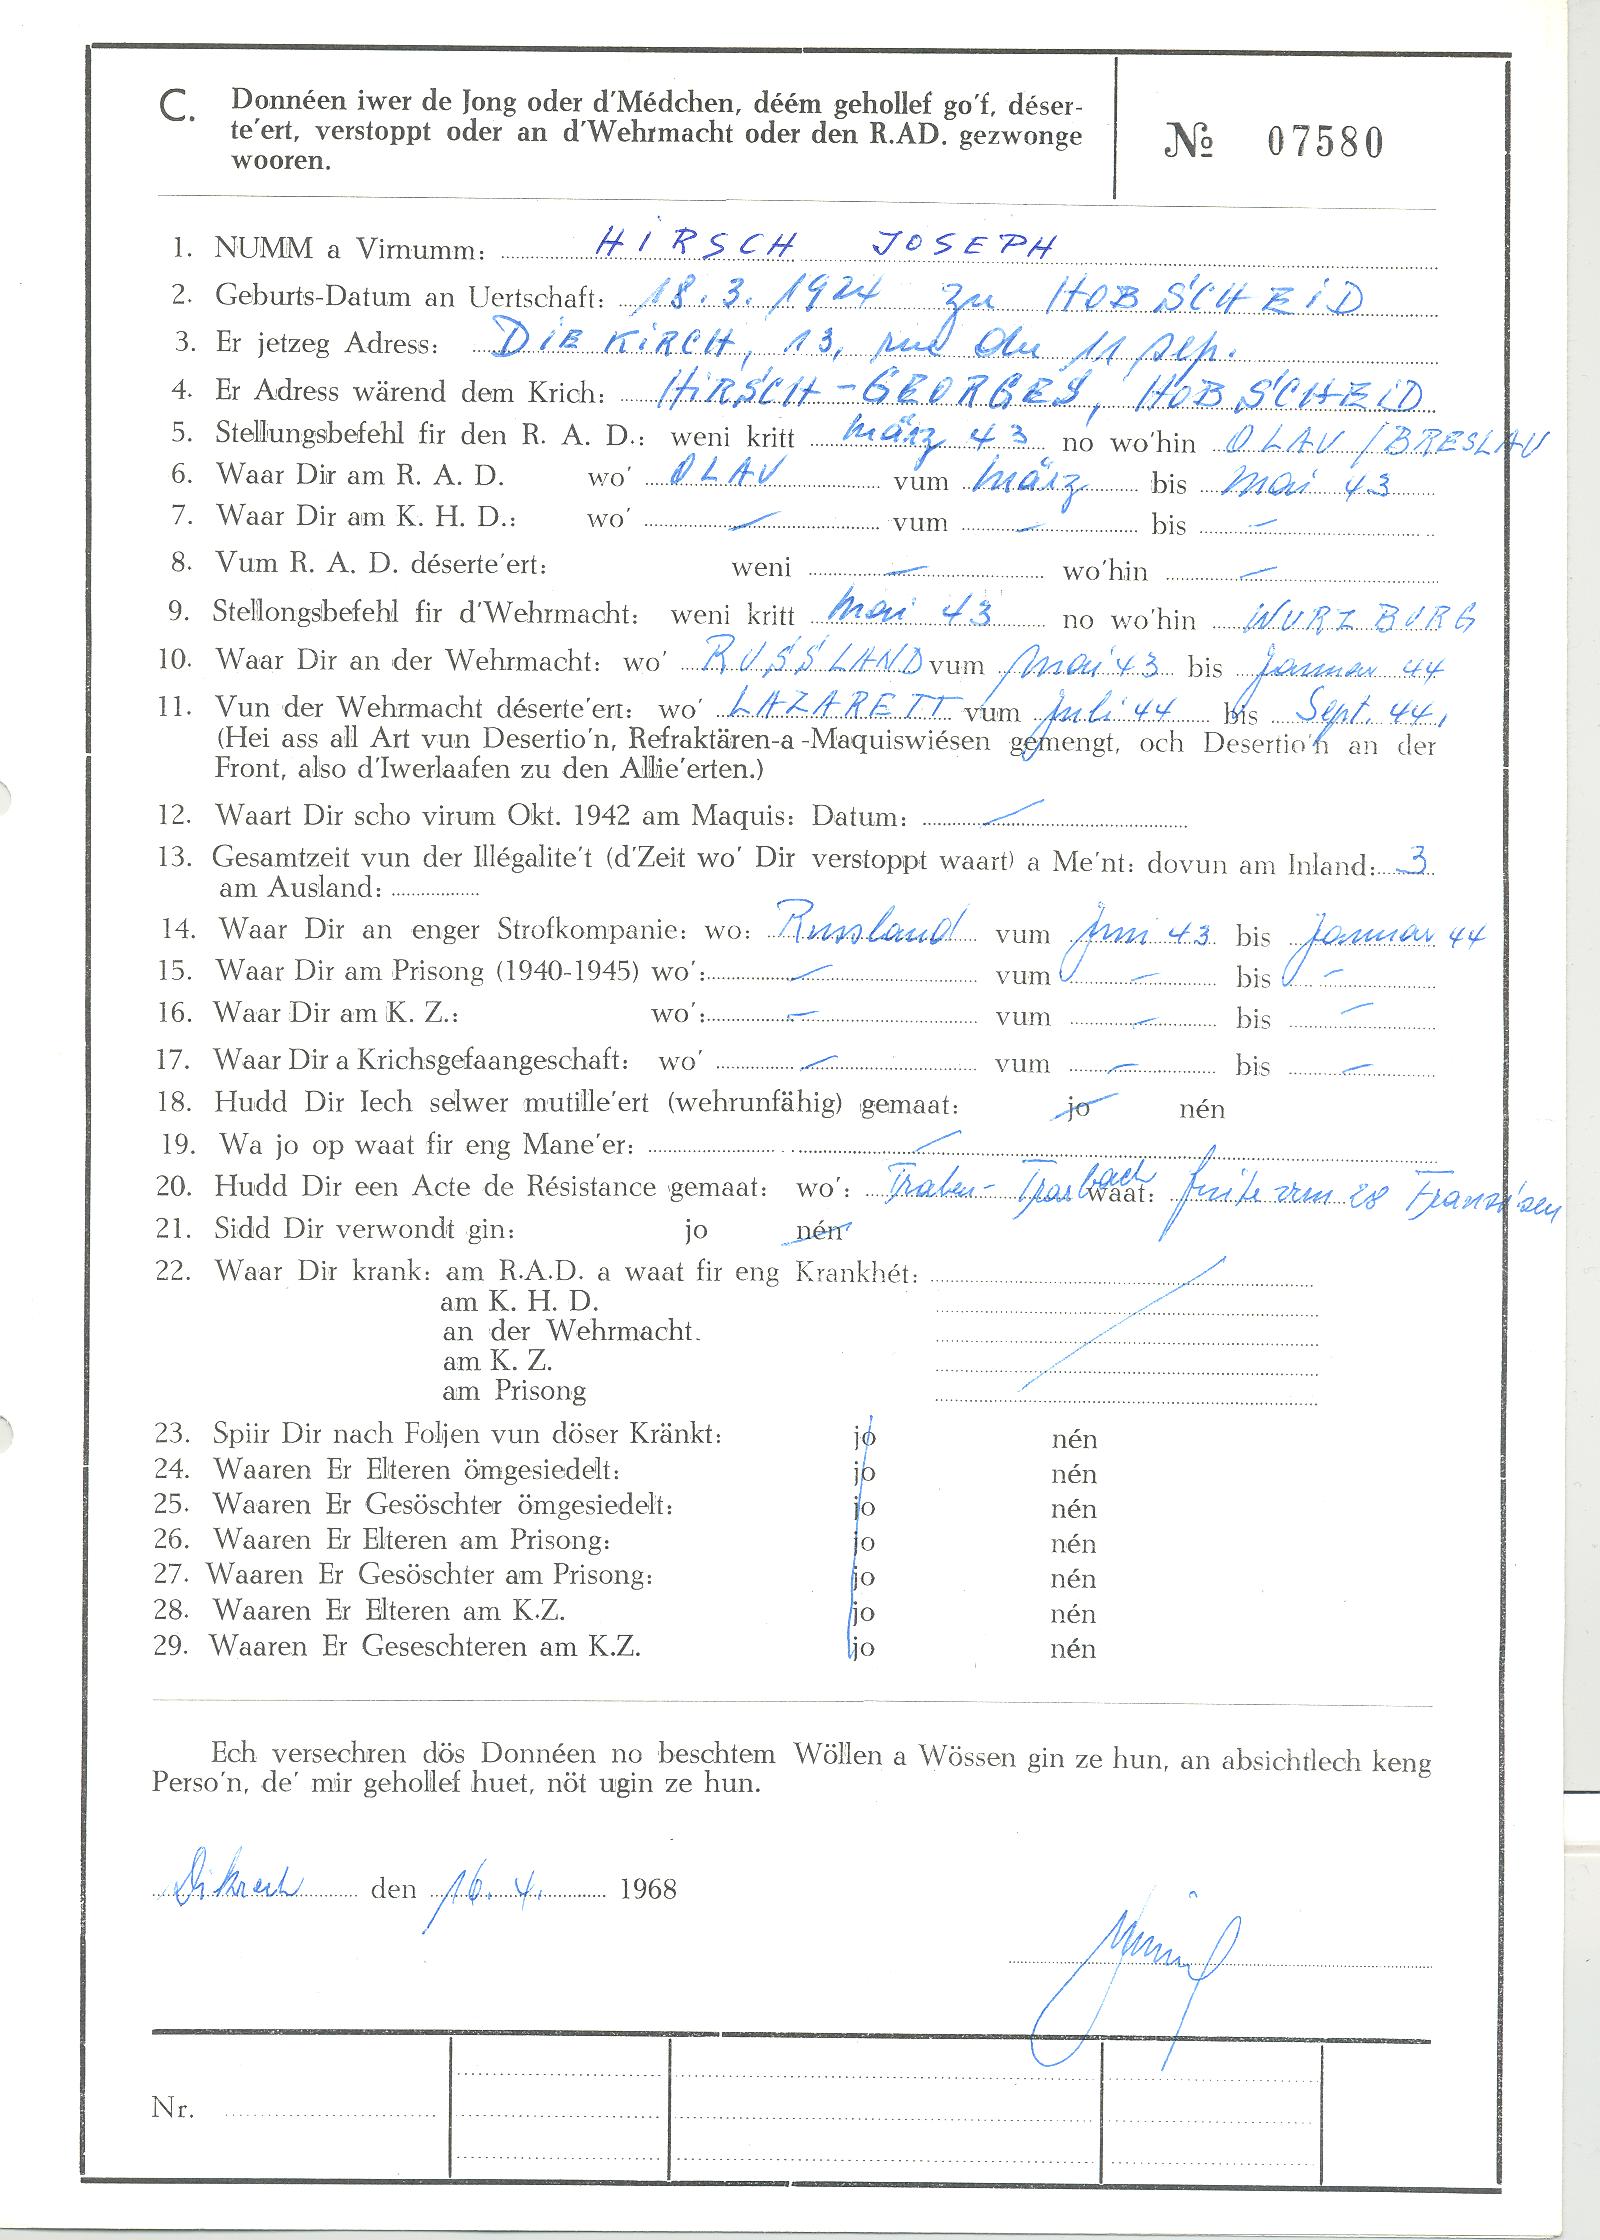 C. Donnéen iwer de Jong oder d'Médchen, déém gehollef go'f, déser-
te'ert, verstoppt oder an d'Wehrmacht oder den R.AD. gezwonge
wooren.
№ 07580
1. NUMM a Virnumm: HIRSCH JOSEPH
2. Geburts-Datum an Uertschaft: 18.3.1924 zu HOBSCHEID
3. Er jetzeg Adress: DIEKIRCH, 13, rue du 11 sep.
4. Er Adress wärend dem Krich: HIRSCH-GEORGES, HOBSCHEID
5. Stellungsbefehl fir den R. A. D.: weni kritt März 43 no wo'hin OLAU / BRESLAU
6. Waar Dir am R. A. D. wo' OLAU vum März bis Mai 43
7. Waar Dir am K. H. D.: wo' — vum — bis —
8. Vum R. A. D. déserte'ert: weni — wo'hin —
9. Stellongsbefehl fir d'Wehrmacht: weni kritt Mai 43 no wo'hin WURZBURG
10. Waar Dir an der Wehrmacht: wo' RUSSLAND vum Mai 43 bis Januar 44
11. Vun der Wehrmacht déserte'ert: wo' LAZARETT vum Juli 44 bis Sept. 44,
(Hei ass all Art vun Desertio'n, Refraktären-a-Maquiswiésen gemengt, och Desertio'n an der
Front, also d'Iwerlaafen zu den Allie'erten.)
12. Waart Dir scho virum Okt. 1942 am Maquis: Datum: —
13. Gesamtzeit vun der Illégalite't (d'Zeit wo' Dir verstoppt waart) a Me'nt: dovun am Inland: 3
am Ausland:
14. Waar Dir an enger Strofkompanie: wo: Russland vum Juni 43 bis Januar 44
15. Waar Dir am Prisong (1940-1945) wo': — vum — bis —
16. Waar Dir am K. Z.: wo': — vum — bis —
17. Waar Dir a Krichsgefaangeschaft: wo' — vum — bis —
18. Hudd Dir Iech selwer mutille'ert (wehrunfähig) gemaat: jo nén
19. Wa jo op waat fir eng Mane'er: —
20. Hudd Dir een Acte de Résistance gemaat: wo': Traben-Trarbach waat: fuite vun 28 Franzo'sen
21. Sidd Dir verwondt gin: jo nén
22. Waar Dir krank: am R.A.D. a waat fir eng Krankhét:
am K. H. D.
an der Wehrmacht.
am K. Z.
am Prisong
23. Spiir Dir nach Foljen vun döser Kränkt: jo nén
24. Waaren Er Elteren ömgesiedelt: jo nén
25. Waaren Er Gesöschter ömgesiedelt: jo nén
26. Waaren Er Elteren am Prisong: jo nén
27. Waaren Er Gesöschter am Prisong: jo nén
28. Waaren Er Elteren am K.Z. jo nén
29. Waaren Er Geseschteren am K.Z. jo nén
Ech versechren dös Donnéen no beschtem Wöllen a Wössen gin ze hun, an absichtlech keng
Perso'n, de' mir gehollef huet, nöt ugin ze hun.
Dikrech den 16. 4. 1968
Nr.